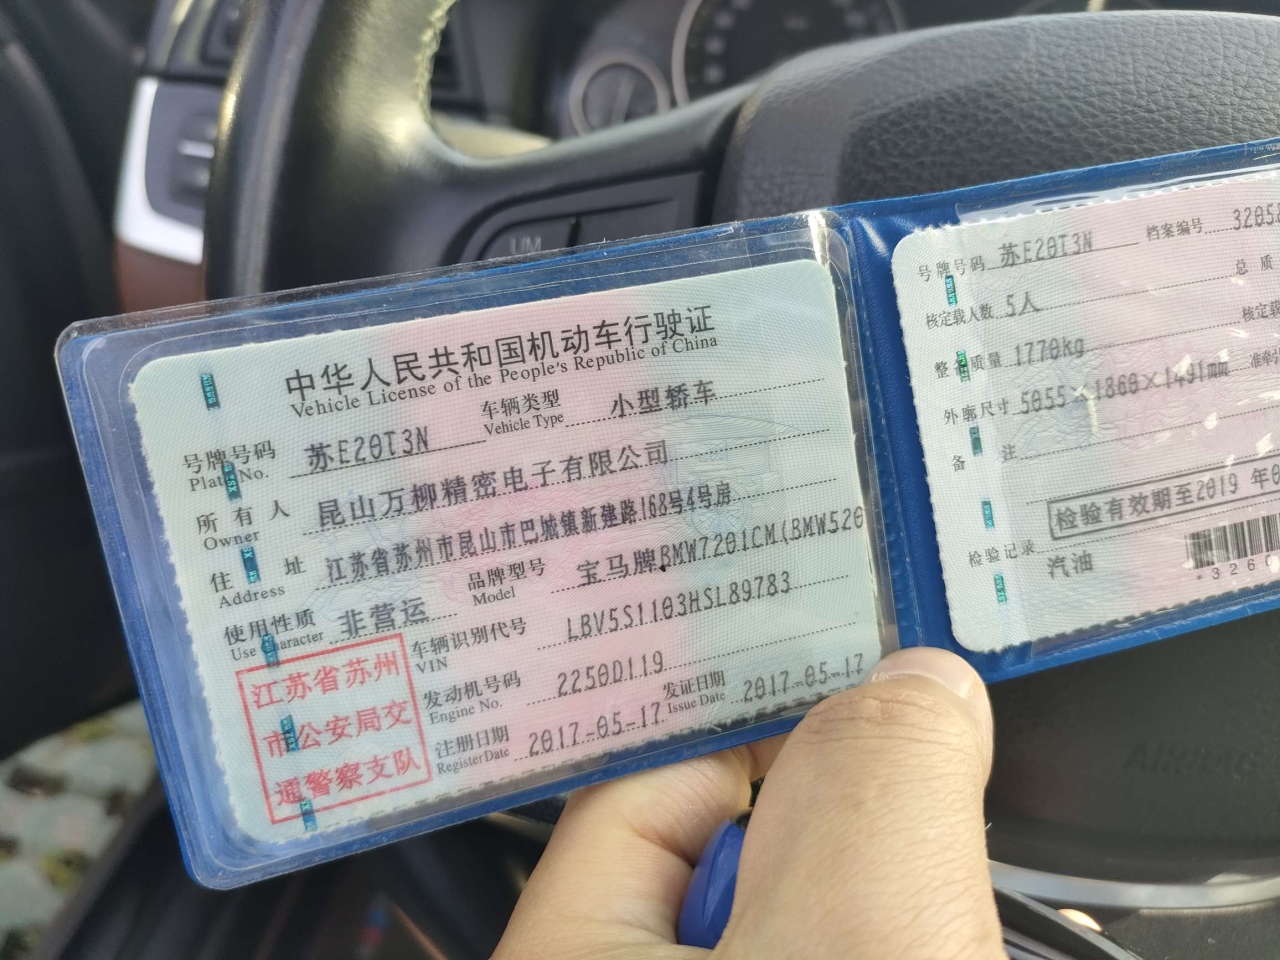 中华人民共和国机动车行驶证
Vehicle License of the People's Republic of China
号牌号码 苏E20T3N 车辆类型 小型轿车
Plate No. Vehicle Type
所有人 昆山万柳精密电子有限公司
Owner
住址 江苏省苏州市昆山市巴城镇新建路168号4号房
Address
使用性质 非营运 品牌型号 宝马牌BMW7201CM(BMW520
Use Character Model
车辆识别代号 LBV5S1103HSL89783
VIN
发动机号码 2250D119
Engine No.
注册日期 2017-05-17 发证日期 2017-05-17
Register Date Issue Date
江苏省苏州
市公安局交
通警察支队
号牌号码 苏E20T3N 档案编号 3205
核定载人数 5人 总质
整备质量 1770kg 核定载
外廓尺寸 5055×1860×1491mm 准牵引
备注
检验有效期至2019年0
检验记录
汽油
*3260